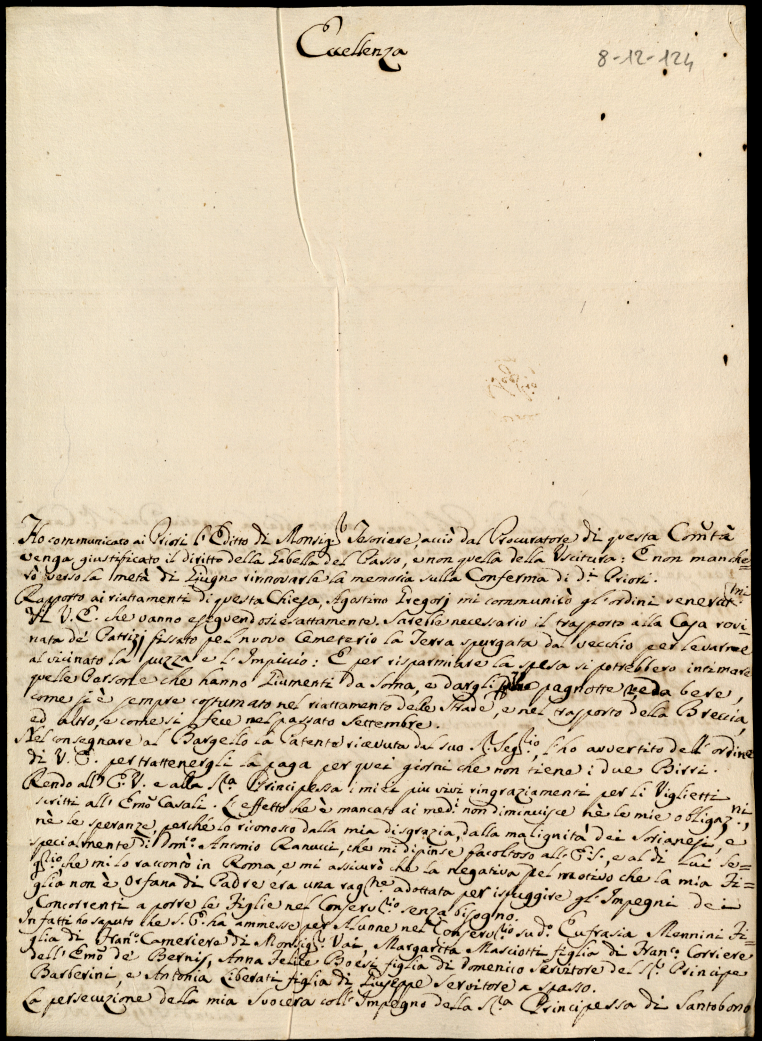 Eccellenza
8-12-124
Ho communicato ai Priori l'Editto di Monsig.r Tesoriere, acciò dal Procuratore di questa Com̃tà
venga giustificato il diritto della Gabella del Passo, e non quella della Uscitura: E non manche=
rò verso la metà di Giugno rinnovarle la memoria sulla Conferma di d.i Priori.
Rapporto ai riattamenti di questa Chiesa, Agostino Gregorj mi communicò gl'ordini venerat.mi
di V.E. che vanno eseguendosi esattamente. Sarebbe necessario il trasporto alla Casa rovi=
nata de' Patrizj fissato pel nuovo Cemeterio la Terra spurgata dal vecchio per levarne
al vicinato la puzza e l'Impiccio: E per risparmiare la spesa si potrebbero intimare
quelle Persone che hanno Giumenti da Soma, e dargli pagnotte e da bere,
come si è sempre costumato nel riattamento delle Strade, e nel trasporto della Breccia,
ed altro, e come si fece nel passato Settembre.
Nel consegnare al Bargello la Patente ricevuta dal suo S. Seg.rio, l'ho avvertito dell'ordine
di V.E. per trattenergli la paga per quei giorni che non tiene i due Birri.
Rendo all'E.V. e alla S.ra Principessa i miei più vivi ringraziamenti per li Viglietti
scritti all'Emo Casali. L'effetto che è mancato ai med.i non diminuisce nè le mie obligaz.ni,
nè le speranze, perchè lo riconosco dalla mia disgrazia, dalla malignità dei Sorianesi, e
specialmente di Dom.co Antonio Ranucci, che mi dipinse facoltoso all'E.S., e al di Lui Se=
g.rio che mi lo raccontò in Roma, e mi assicurò che la negativa pel motivo che la mia Fi=
glia non è Orfana di Padre era una rag.ne adottata per isfuggire gl'Impegni dei
Concorrenti a porre le Figlie nel Conserv.rio senza bisogno.
In fatti ho saputo che S.E. ha ammesse per Alunne nel Conserv.rio sud.o Eufrasia Mennini Fi=
glia di Fran.co Cameriere di Monsig.r Vai, Margarita Masciotti figlia di Fran.co Corriere
dell'Emo de' Bernis, Anna Felice Boesi figlia di domenico Servitore del S.r Principe
Barberini, e Antonia Liberati figlia di Giuseppe Servitore a spasso.
La persecuzione della mia Suocera coll'Impegno della S.ra Principessa di Santobono